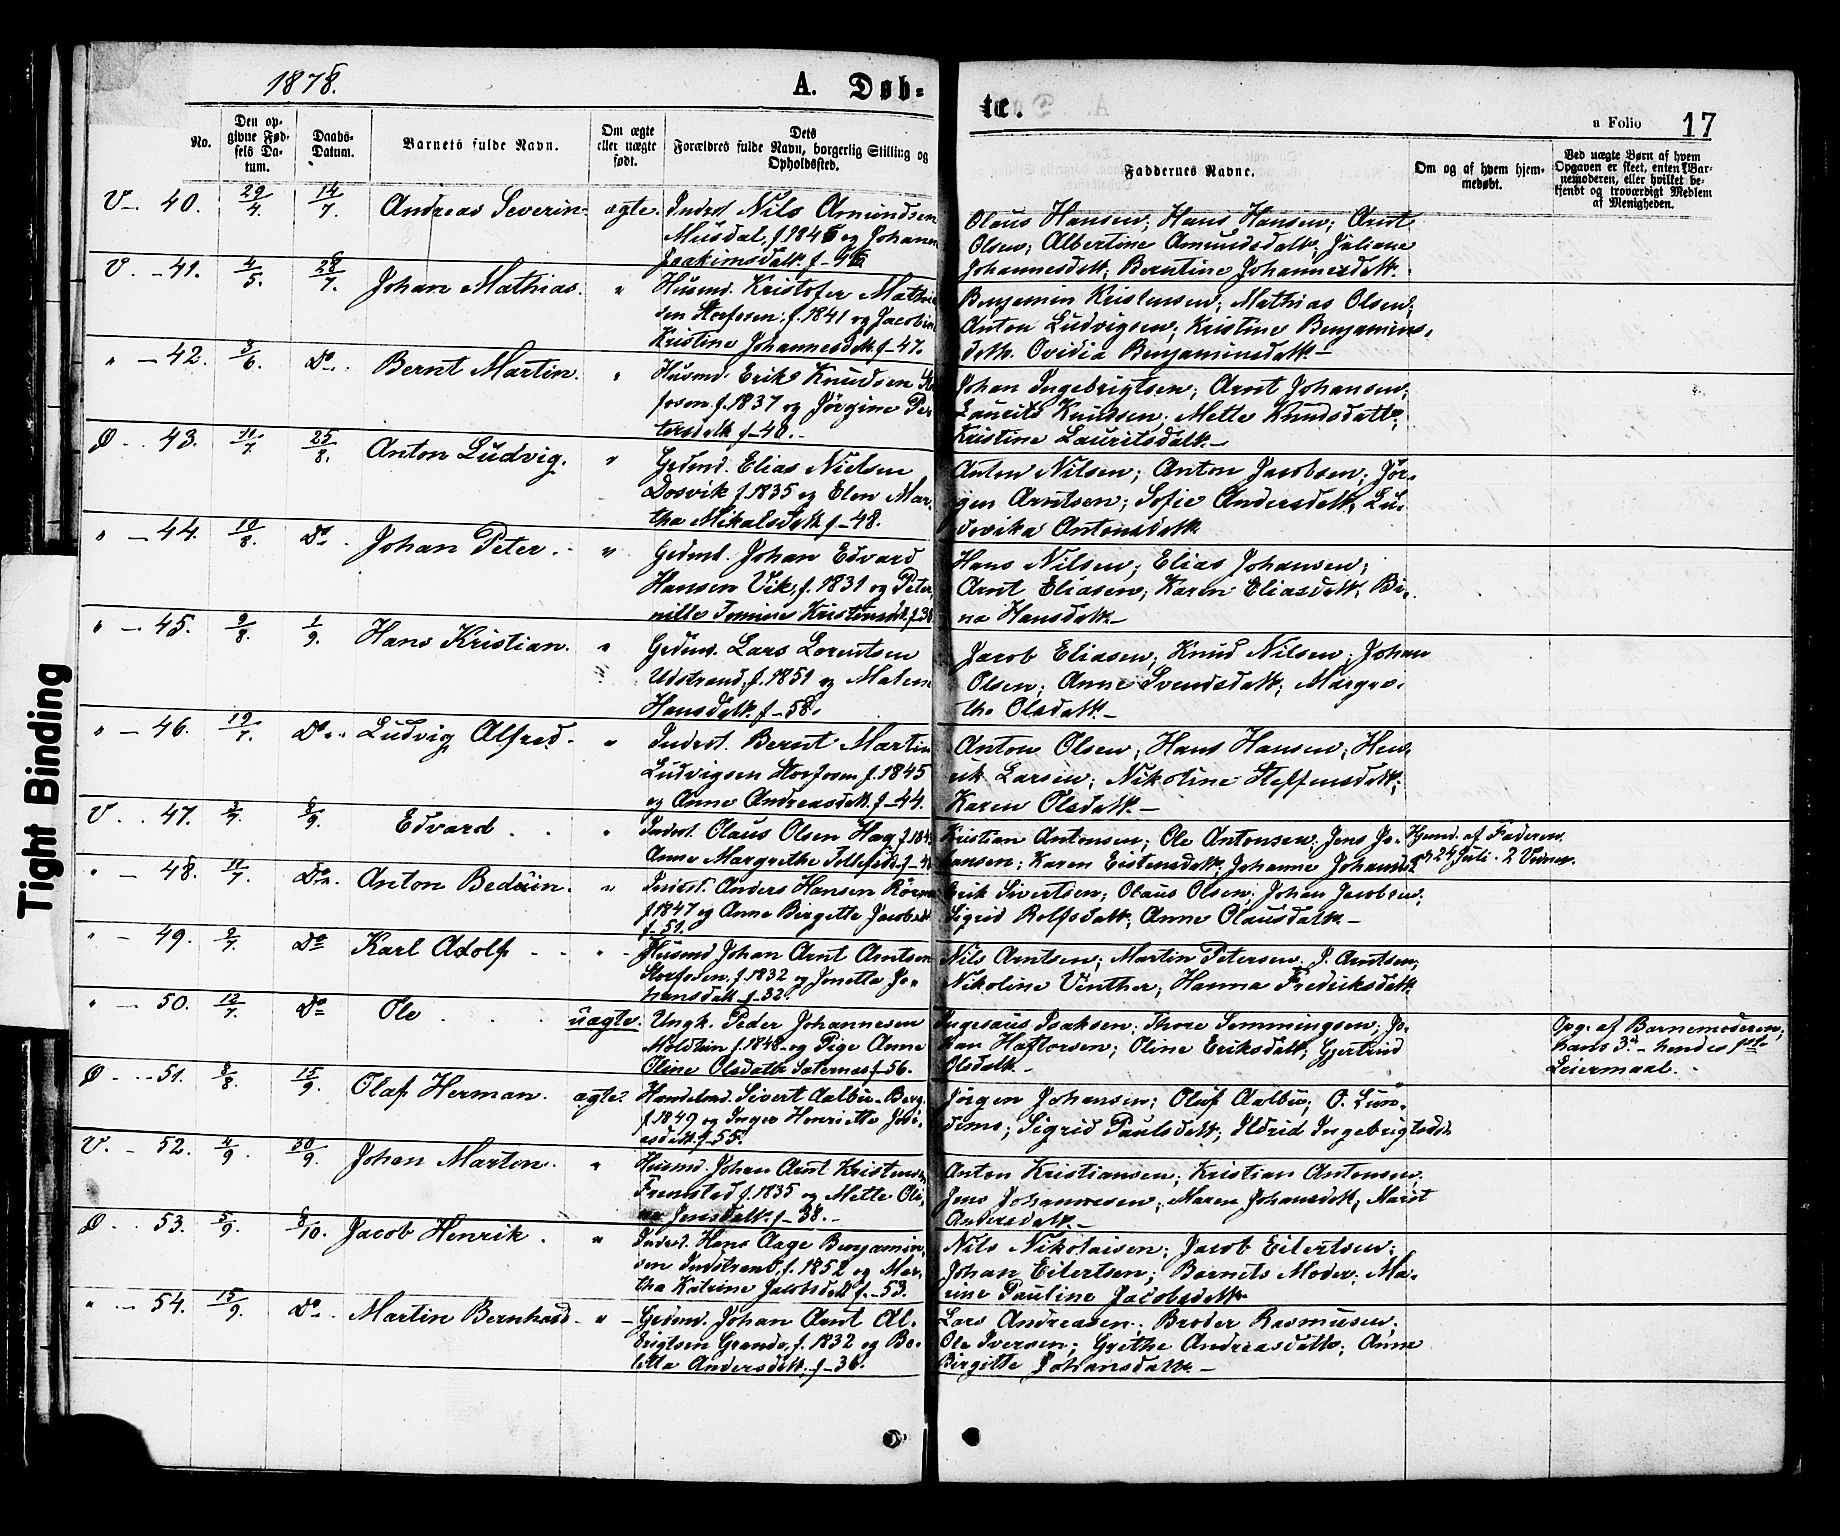 1878.
A. Døb=
te.
a Folio 17
No.
Den op-
givne Fød-
sels Da-
tum.
Daabs-
Datum.
Barnets fulde Navn.
Om ægte
eller uægte
født.
Dets
Forældres fulde Navn, borgerlig Stilling og
Opholdssted.
Faddernes Navne.
Om og af hvem hjem-
medøbt.
Ved uægte Børn af hvem
Opgaven er skeet, enten Bar-
nemoderen, eller hvilket be-
kjendt og troværdigt Medlem
af Menigheden.
V - 40. 29/4. 14/7. Andreas Severin. ægte. Inderst Nils Amundsen
Musdal, f. 1846 og Johanna
Joakimsdatt. f - 46.
Olaus Hansen; Hans Hansen; Arnt
Olsen; Albertine Amundsdatt; Juliane
Johannesdatt; Berntine Johannesdatt.
V. - 41. 4/5. 28/7. Johan Mathias. " Husmd. Kristofer Mathi
sen Storfosen, f. 1841 og Jacobine
Kristine Johannesdatt. f - 47.
Benjamin Kristensen; Mathias Olsen;
Anton Ludvigsen; Kristine Benjamins-
datt. Ovidia Benjaminsdatt. -
" - 42. 3/6. Do. Bernt Martin. " Husmd. Erik Knudsen
fosen f. 1837 og Jørgine Pe-
tersdatt f - 40. -
Johan Ingebrigtsen; Arnt Johansen;
Laurits Knudsen; Mette Knudsdatt;
Kristine Lauritsdatt. -
Ø - 43. 11/7. 25/8. Anton Ludvig. " Gedmd. Elias Nielsen
Dosvik f. 1835 og Elen Mar-
tha Mikalsdatt f - 48.
Anton Nilsen; Anton Jacobsen; Jør-
gen Arntsen; Sofie Andersdatt; Lu-
dovika Antonsdatt.
" - 44. 10/8. Do. Johan Peter. " Gedmd. Johan Edvard
Hansen Vik, f. 1831 og Peter
nille Kristensdatt. f. 38
Hans Nilsen; Elias Johansen;
Arnt Eliasen; Karen Eliasdatt; Bi-
na Hansdatt. -
" - 45. 9/8. 1/9. Hans Kristian. " Gedmd. Lars Lorentsen
Udstrand, f. 1851 og Malene
Hansdatt. f - 58.
Jacob Eliasen; Knud Nilsen; Johan
Olsen; Anne Svendsdatt; Margre-
the Olsdatt. -
" - 46. 19/7. Do. Ludvig Alfred. " Inderst. Bernt Martin
Ludvigsen Storfosen f. 1845
og Anne Andreasdatt. f - 44.
Anton Olsen; Hans Hansen; Hen-
rik Larsen; Nikoline Steffensdatt;
Karen Olsdatt. -
V. - 47. 3/7. 8/9. Edvard. " Inderst. Olaus Olsen Hag f. 184
Anne Margrethe
Kristian Antonsen; Ole Antonsen; Jens Jo-
hansen; Karen Eistensdatt; Johanne Johansd.
Hjemd. af Faderen
24 Juli. 2 Vidner.
" - 48. 11/7. Do. Anton Bedüin. " Inderst. Anders Hansen
f. 1847 og Anne Birgitte Jacobsdt
f - 51.
Erik Sivertsen; Olaus Olsen; Johan Jacobsen;
Sigrid Rolfsdatt; Anne Olausdatt. -
" - 49. 2/7. Do Karl Adolf. " Husmd Johan Arnt Arntsen
Storfosen, f. 1832 og Jonetta Jo-
hansdatt - f - 32.
Nils Arntsen; Martin Petersen, J. Arntsen;
Nikoline Vinther; Hanna Fredriksdatt.
" - 50. 12/7. Do Ole uægte. Ungk. Peder Johannesen
Moldtun f. 1848 og Pige Anne
Oline Olsdatt Saternæs f - 56.
Ingesaus Isaksen. Thore Tommingsen; Jo-
han Haftorsen; Oline Eriksdatt; Gjertrud
Olsdatt. -
Opg. af Barnemoderen;
hans 3d - hendes 1ste
Leiermaal. -
Ø - 51. 8/8. 15/9. Olaf Herman. ægte. Handelmd. Sivert Aalbu - Berg.
f. 1849 og Inger Henriette
datt f - 55.
Jørgen Johansen; Oluf Aalbu; O. Lun-
demo; Sigrid Paulsdatt; Ildrid Ingebrigtsdt.
V. - 52. 4/9. 30/9. Johan Morton. " Husmd. Johan Arnt Kristensen
Fremstad f. 1835 og Mette Oli-
na Jensdatt. f - 38. -
Anton Kristiansen; Kristian Antonsen;
Jens Johannesen; Maren Johansdatt; Marit
Andersdatt. -
Ø - 53. 5/9. 6/10. Jacob Henrik. " Inderst. Hans Aage Benjamin-
sen Indstrand, f. 1852 og Mar-
tha Katrine Jacobsdatt f - 53.
Nils Nikolaisen; Jacob Eilertsen;
Johan Eilertsen; Barnets Moder; Ma-
rine Pauline Jacobsdatt
" - 54. 15/9. Do. Martin Bernhard. " - Gedmd. Johan Arnt Al-
brigtsen Grande, f. 1832 og Bo-
letta Andersdatt, f - 36.
Lars Andreasen; Broder Rasmusen;
Ole Iversen; Grethe Andreasdatt; Anne
Birgitte Johansdatt. -
Tight Binding